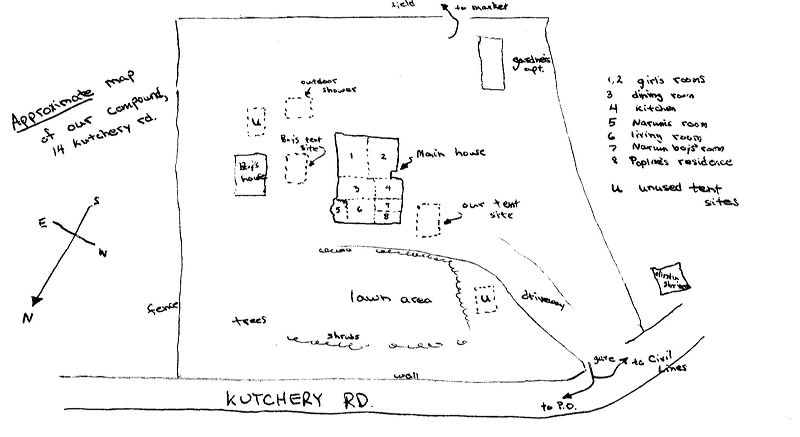 field
to market
Approximate map
of our compound,
14 Kutchery rd.
outdoor
shower
gardner's
apt.
1,2 girl's rooms
3 dining room
4 kitchen
5
room
6 living room
7 boys' room
8 residence
U unused tent
sites
U
Boys tent
site
Boy's
house
1
2
Main house
3
4
5
6
7
8
our tent
site
S
E
W
N
Hindu
shrine
lawn area
U
driveway
fence
trees
shrubs
wall
gate
to Civil
Lines
KUTCHERY RD.
to P.O.